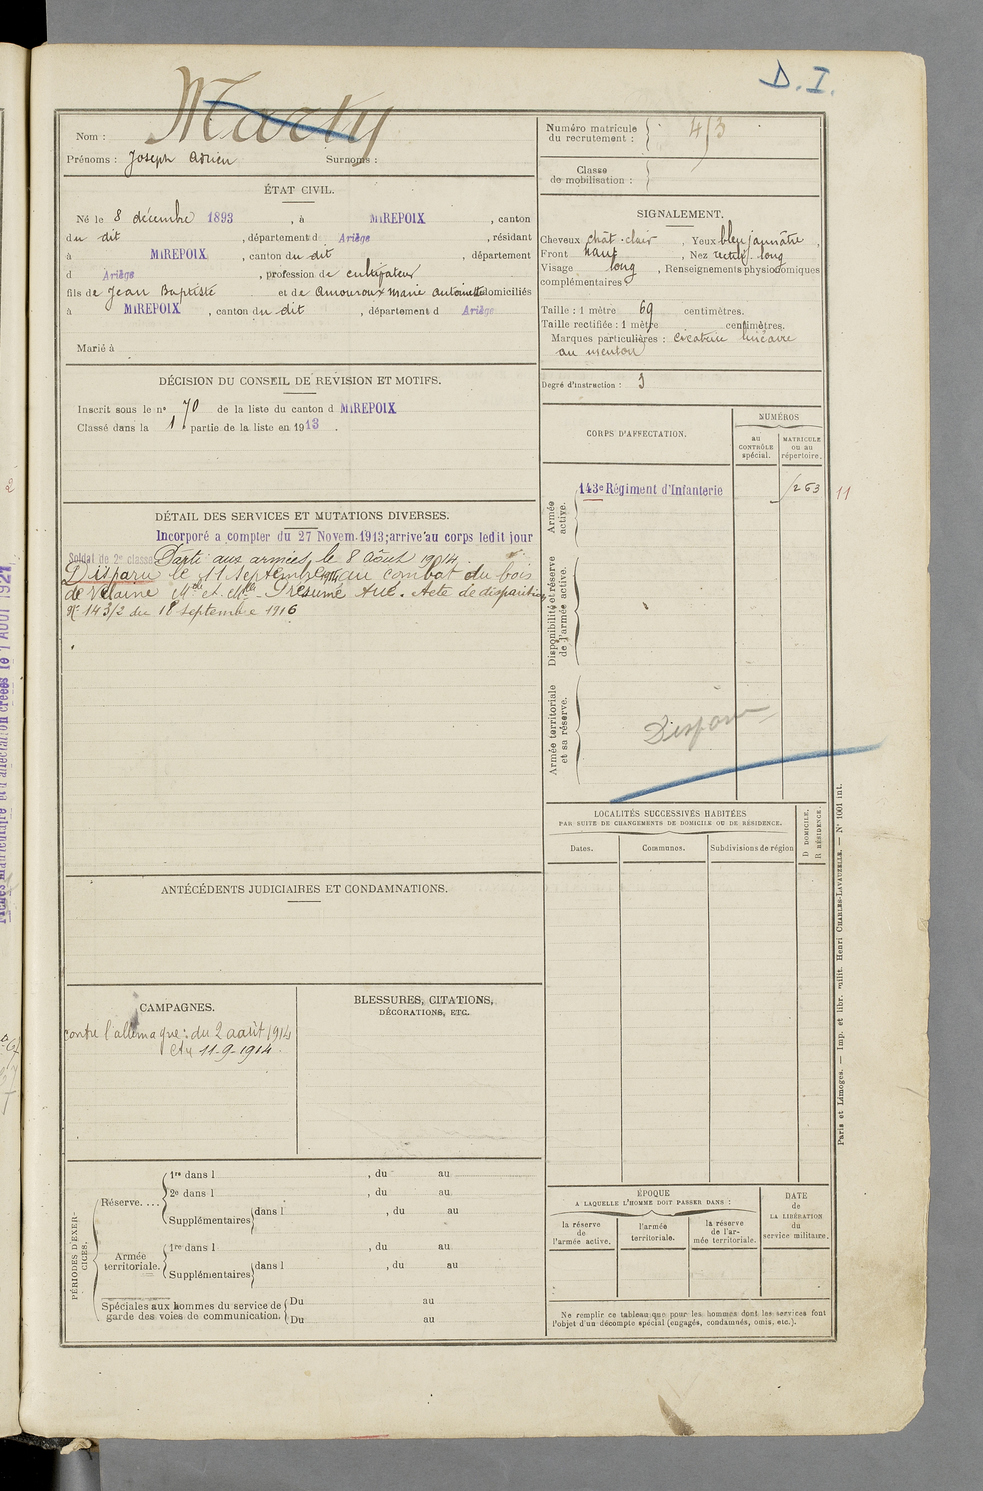 D. I.
Marty
Nom :
Prénoms : Joseph Adrien Surnoms :
ÉTAT CIVIL.
Né le 8 décembre 1893, à MIREPOIX, canton
du dit, département d Ariège, résidant
à MIREPOIX, canton du dit, département
d Ariège, profession de cultivateur
fils de Jean Baptiste et de Amouroux Marie Antoinette domiciliés
à MIREPOIX, canton du dit, département d Ariège
Marié à
DÉCISION DU CONSEIL DE REVISION ET MOTIFS.
Inscrit sous le n° 70 de la liste du canton d MIREPOIX
Classé dans la 1 partie de la liste en 1913.
DÉTAIL DES SERVICES ET MUTATIONS DIVERSES.
Incorporé a compter du 27 Novem. 1913; arrivé au corps ledit jour
Soldat de 2e classe Parti aux armées le 8 Août 1914.
Disparu le 11 Septembre 1914 au combat du bois
de Velaine Mthe et Mlle. Présumé tué. Acte de disparition
N° 143/2 du 18 septembre 1916
ANTÉCÉDENTS JUDICIAIRES ET CONDAMNATIONS.
CAMPAGNES.
contre l'allemagne : du 2 août 1914
au 11-9-1914.
BLESSURES, CITATIONS,
DÉCORATIONS, ETC.
PÉRIODES D'EXERCICES.
Réserve. ...
1re dans l , du au
2e dans l , du au
Supplémentaires dans l , du au
Armée
territoriale.
1re dans l , du au
Supplémentaires dans l , du au
Spéciales aux hommes du service de
garde des voies de communication.
Du au
Du au
Numéro matricule
du recrutement : 413
Classe
de mobilisation :
SIGNALEMENT.
Cheveux chât. clair, Yeux bleu jaunâtre,
Front haut, Nez rectil. long
Visage long, Renseignements physionomiques
complémentaires :
Taille : 1 mètre 69 centimètres.
Taille rectifiée : 1 mètre centimètres.
Marques particulières : cicatrice linéaire
au menton
Degré d'instruction : 3
CORPS D'AFFECTATION.
NUMÉROS
au
CONTRÔLE
spécial.
MATRICULE
ou au
répertoire.
Armée
active.
143e Régiment d'Infanterie
1263
11
Disponibilité et réserve
de l'armée active.
Armée territoriale
et sa réserve.
Disparu
LOCALITÉS SUCCESSIVES HABITÉES
PAR SUITE DE CHANGEMENTS DE DOMICILE OU DE RÉSIDENCE.
Dates.
Communes.
Subdivisions de région
D DOMICILE.
R RÉSIDENCE.
ÉPOQUE
A LAQUELLE L'HOMME DOIT PASSER DANS :
la réserve
de
l'armée active.
l'armée
territoriale.
la réserve
de l'ar-
mée territoriale.
DATE
de
LA LIBÉRATION
du
service militaire.
Ne remplir ce tableau que pour les hommes dont les services font
l'objet d'un décompte spécial (engagés, condamnés, omis, etc.).
Paris et Limoges. — Imp. et libr. milit. Henri CHARLES-LAVAUZELLE. — N° 1001 int.